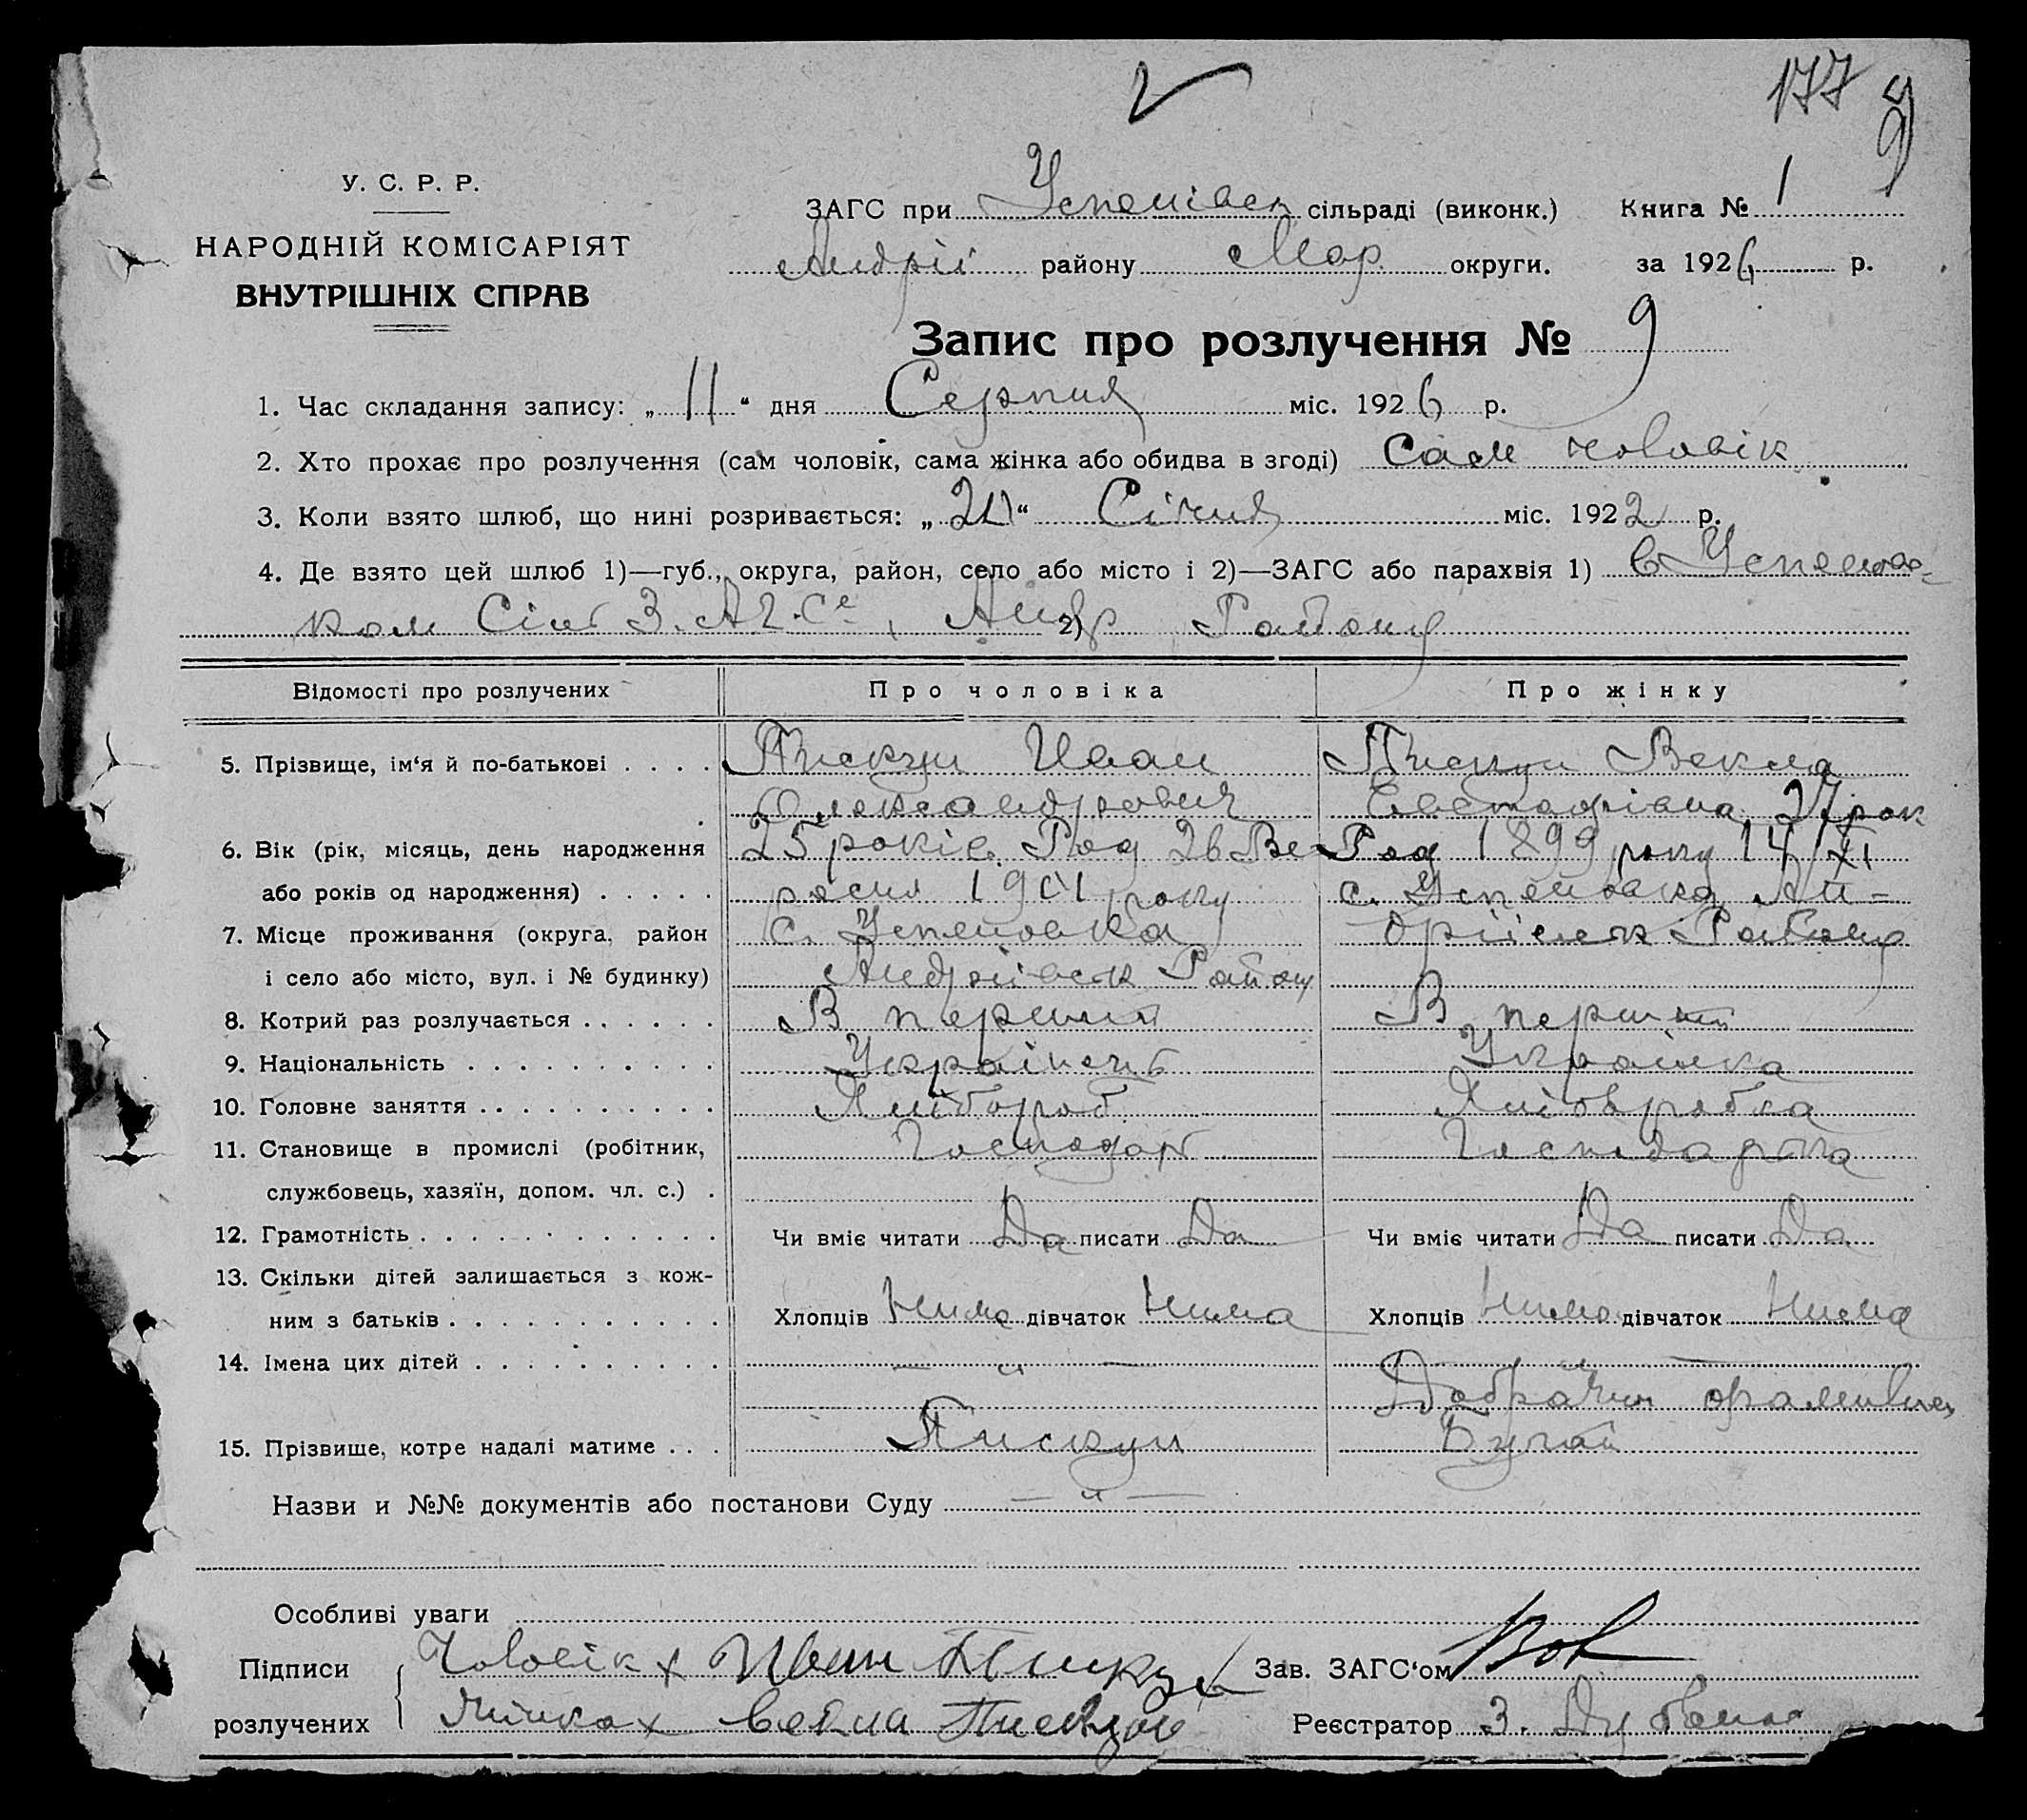 177
9
У. С. Р. Р.
НАРОДНІЙ КОМІСАРІЯТ
ВНУТРІШНІХ СПРАВ
ЗАГС при Успенівск сільраді (виконк.) Книга № 1
Андрії району Мар. округи. за 1926 р.
Запис про розлучення № 9
1. Час складання запису: „ 11 “ дня Серпня міс. 1926 р.
2. Хто прохає про розлучення (сам чоловік, сама жінка або обидва в згоді) Сам чоловік
3. Коли взято шлюб, що нині розривається: „ “ Січня міс. 1922 р.
4. Де взято цей шлюб 1)—губ., округа, район, село або місто і 2)—ЗАГС або парахвія 1) в
ком Сіль З.АГ.Се, Андр 2) Району
Відомості про розлучених
Про чоловіка
Про жінку
5. Прізвище, ім‘я й по-батькові . . . . Пискун Иван Пискун Векла
Олександрович Евстафівна 27 рок
6. Вік (рік, місяць, день народження 25 років. Род 26 Ве- Род 1899 року 14/XI
або років од народження) . . . . . ресня 1901 року с. Успенівка Ан-
7. Місце проживання (округа, район с. Успеновка Району
і село або місто, вул. і № будинку) Андріївск Району
8. Котрий раз розлучається . . . . . . В перший В перший
9. Національність . . . . . . . . . . Українець Українка
10. Головне заняття . . . . . . . . . . Хлібороб
11. Становище в промислі (робітник, Господарь Господарька
службовець, хазяїн, допом. чл. с.) .
12. Грамотність . . . . . . . . . . . . Чи вміє читати Да писати Да Чи вміє читати Да писати Да
13. Скільки дітей залишається з кож-
ним з батьків . . . . . . . . . . . Хлопців Нима дівчаток Нима Хлопців Нима дівчаток Нима
14. Імена цих дітей . . . . . . . . . . — „ — „ —
15. Прізвище, котре надалі матиме . . . Пискун Бугай
Назви и №№ документів або постанови Суду — „ —
Особливі уваги
Підписи Чоловік х Иван Пискун Зав. ЗАГС‘ом
розлучених Жінка х Векла Реєстратор З.